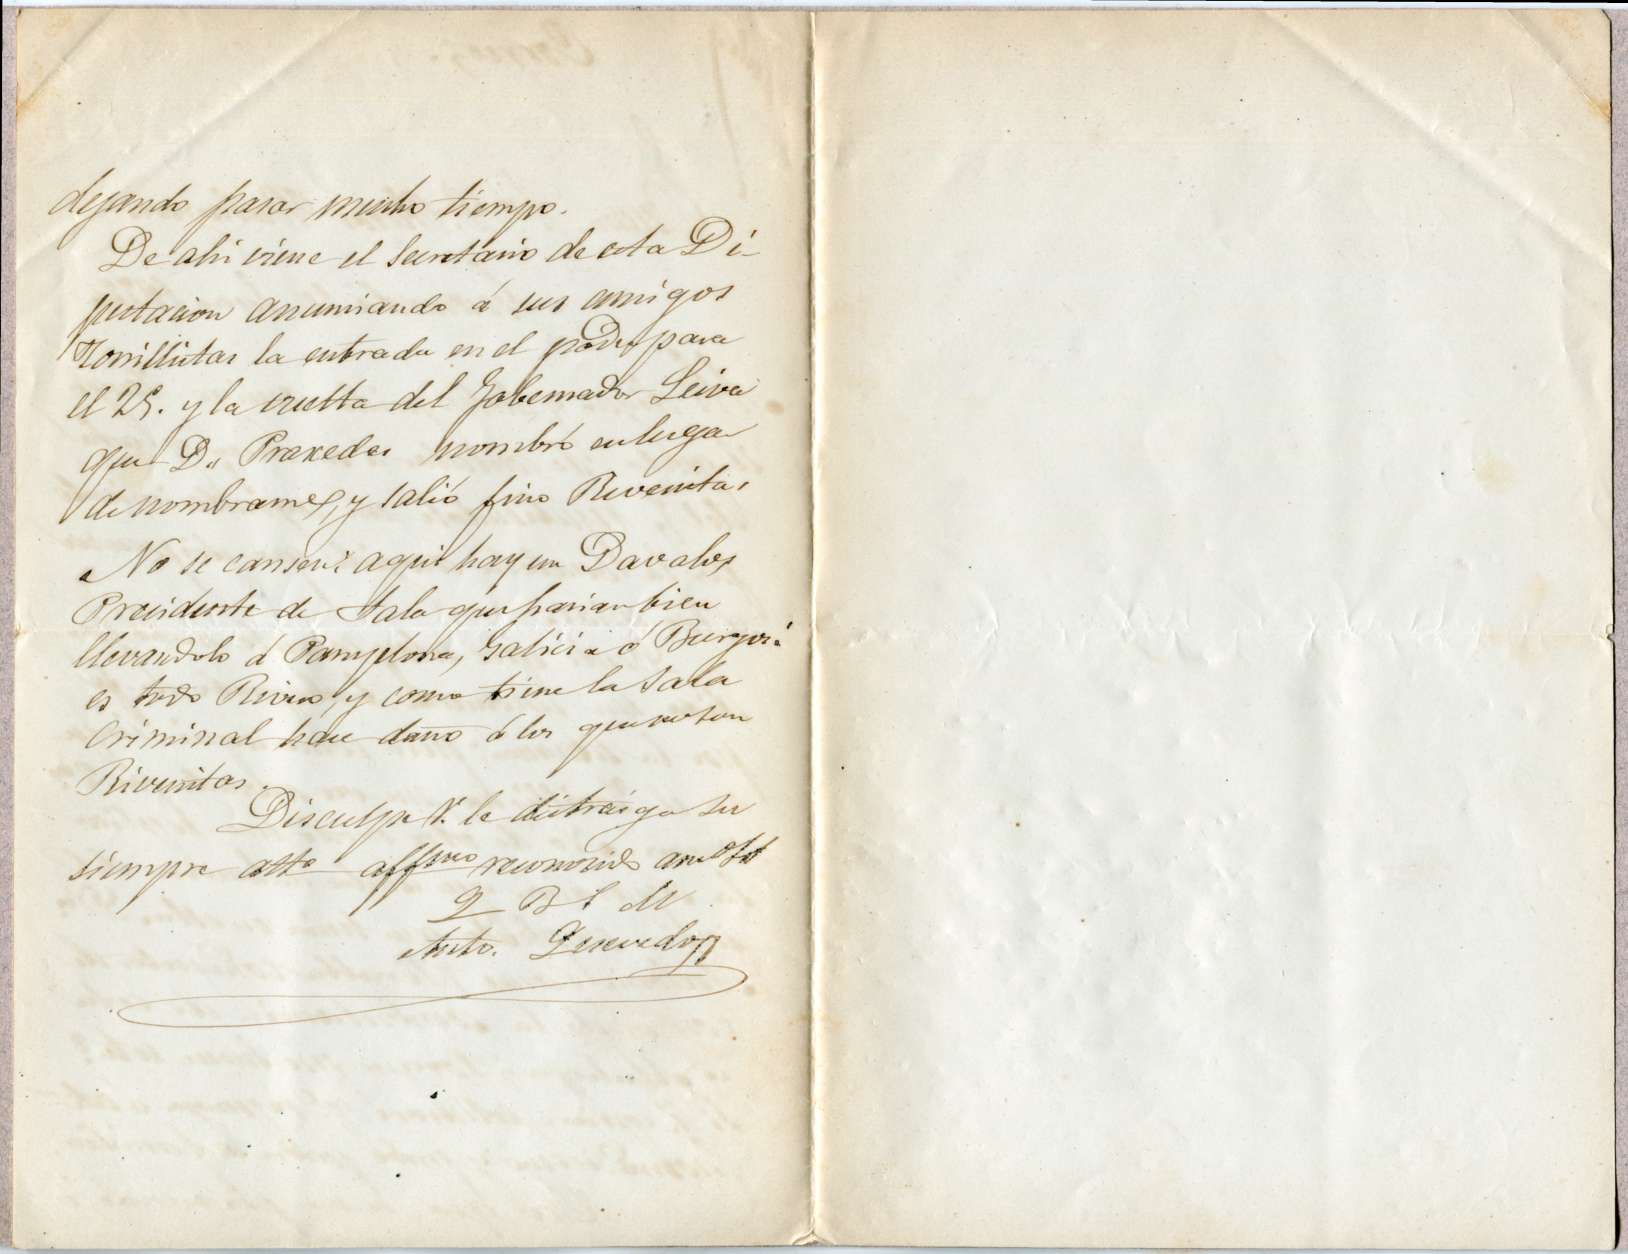 dejando pasar mucho tiempo.
De ahi viene el Secretario de esta Di-
putacion anunciando á sus amigos
Zorrillistas la entrada en el poder para
el 25. y la vuelta del Gobernador Leiva
que Dn Praxedes nombró en lugar
de nombrarme, y salió fino Riverista.
No se cansen: aqui hay un Davalos
Presidente de Sala que harian bien
llevandolo á Pamplona, Galicia ó Burgos:
es todo Rivero, y como tiene la Sala
Criminal hace daño á los que no son
Riveristas.
Disculpe V. le distraiga su
siempre atto affmo reconocido
Q B S M
Anto.